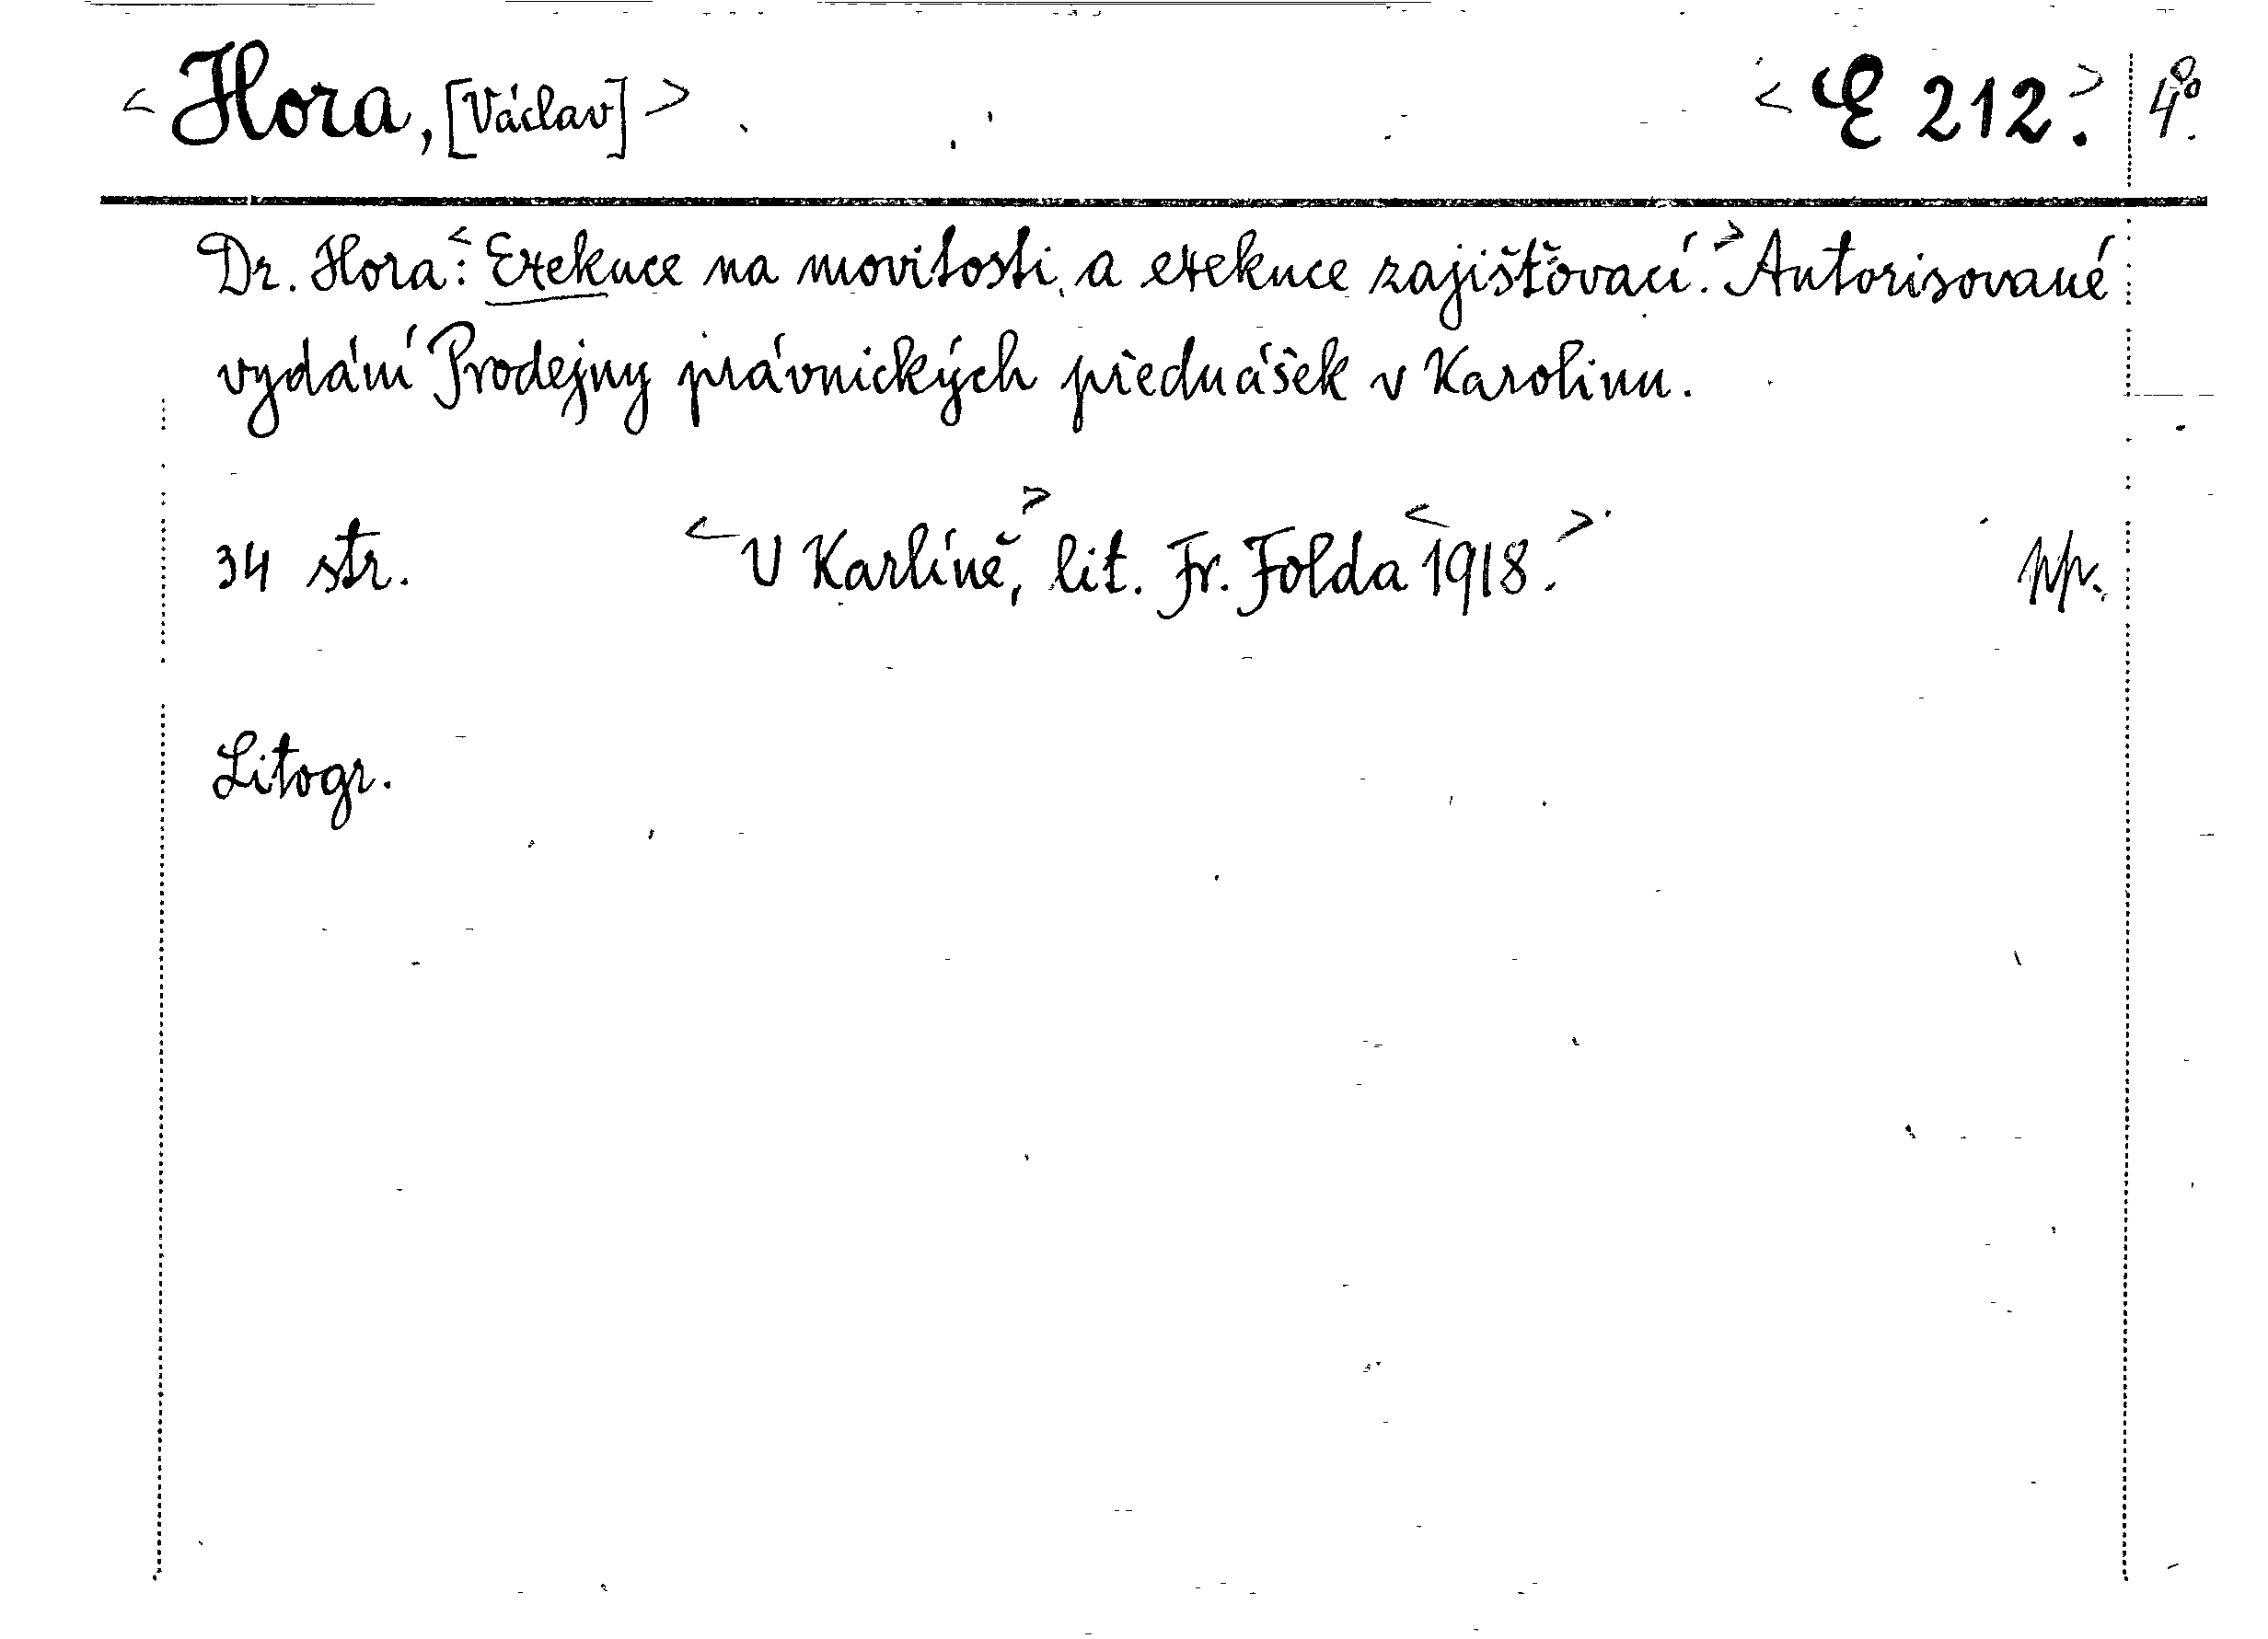 < Hora, [Václav] > < E 212. > 4°.
Dr. Hora: < Exekuce na movitosti a exekuce zajišťovací. > Autorisované
vydání Prodejny právnických přednášek v Karolinu.
34 str. < V Karlíně, > lit. Fr. Folda < 1918. >
Litogr.